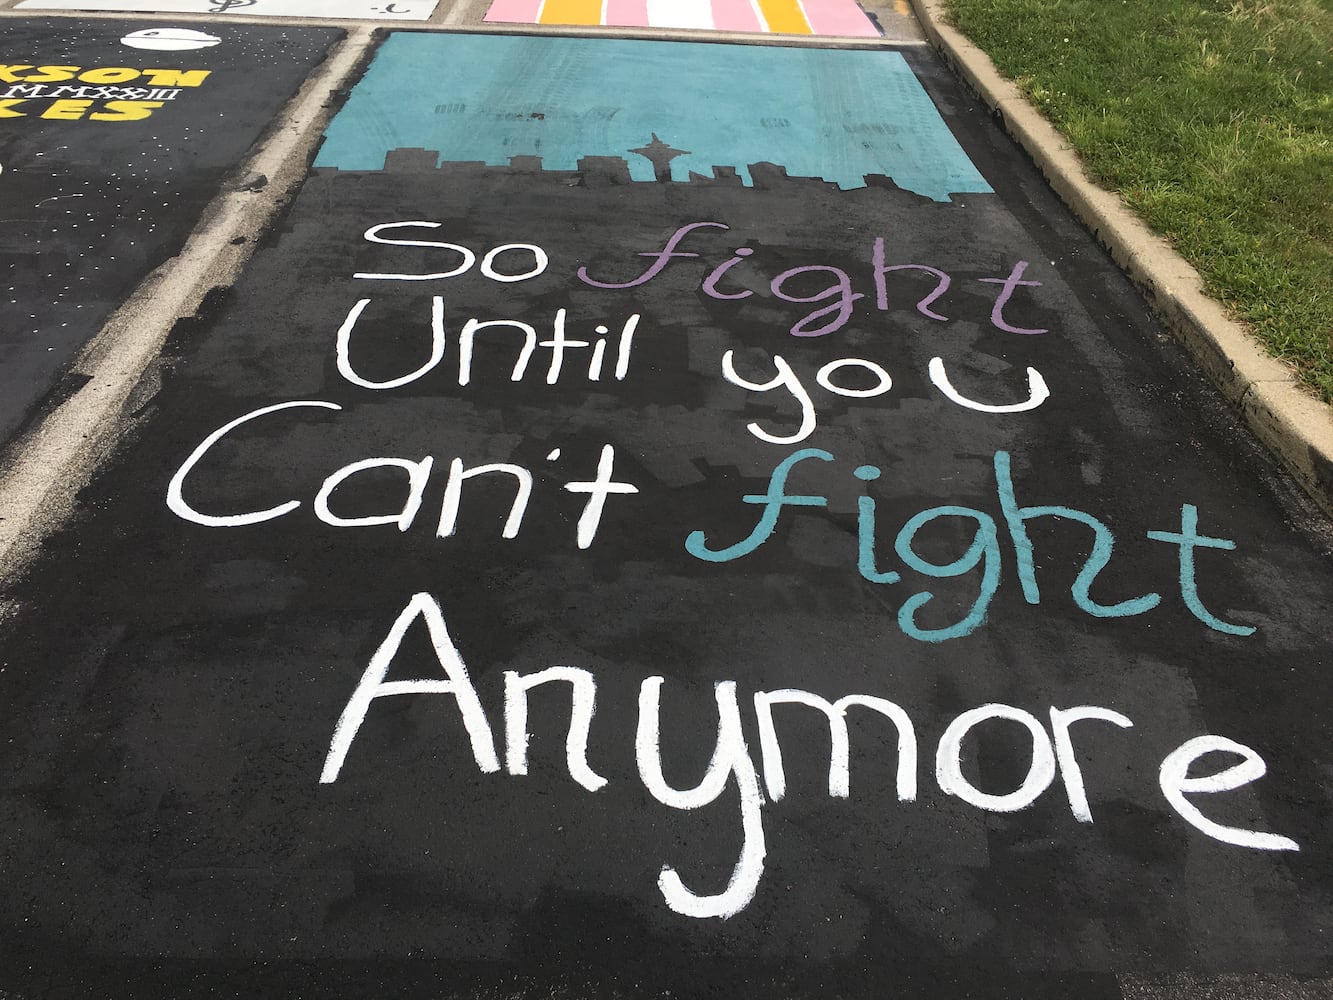 MMXXIII
So fight
Until you
Can't fight
Anymore